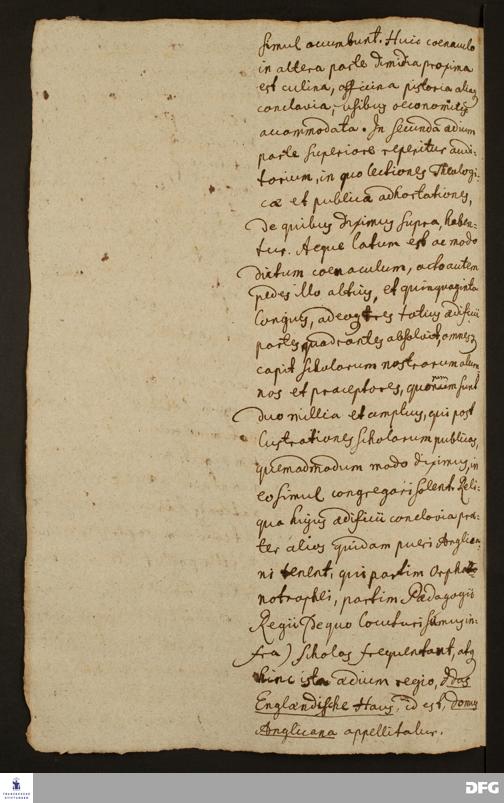 simul accumbunt. Huic coenaculo
in altera parte dimidia proxima
est culina, officina pistoria aliaq
conclavia, usibus oeconomicis
accommodata. In secunda ædium
parte superiore reperitur audi-
torium, in quo lectiones Theologi-
cæ et publicæ adhortationes,
de quibus diximus supra, haben-
tur. Aeque latum est ac modo
dictum coenaculum, octo autem
pedes illo altius, et quinquaginta
longius, adeoq tres totius ædificii
partis quadrantes absolvit, omnesq
capit scholarum nostrarum alum-
nos et præceptores, quorum sunt
duo millia et amplius, qui post
lustrationes scholarum publicas,
quemadmodum modo diximus, in
eo simul congregari solent. Reli-
qua hujus ædificii conclavia præ-
ter alios quidam pueri Anglica-
ni tenent, qui partim Orpha-
notrophei, partim Pædagogii
Regii (de quo locuturi sumus in-
fra) scholas frequentant, atq
hinc ista ædium regio, das
Englændische Haus, id est, domus
Anglicana appellitatur.
FRANCKESCHE STIFTUNGEN
DFG